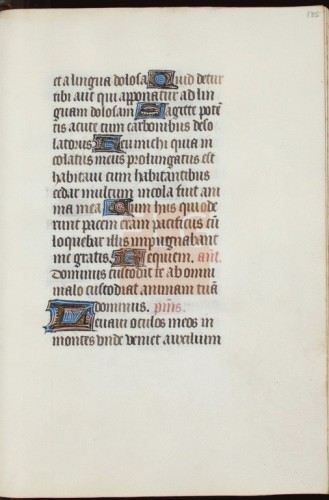 135
et a lingua dolosa Quid detur
tibi aut qui apponatur ad lin
guam dolosam Sagitte potē
tis acute cum carbonibus deso
latoriis Heu michi quia in
colatus meus prolungatus est
habitaui cum habitantibus
cedar multum incola fuit ani
ma mea Cum hiis qui ode
runt pacem eram pacificus cū
loquebar illis impugnabant
me gratis Requiem. añt.
Dominus custodit te ab omni
malo custodiat animam tuā
dominus. p̄s.
Leuaui oculos meos in
montes vnde veniet auxilium